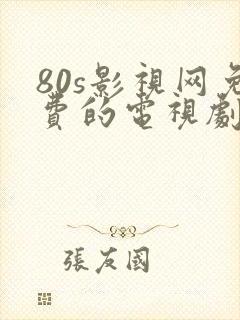 80s影視网免
費的電視劇
張友國